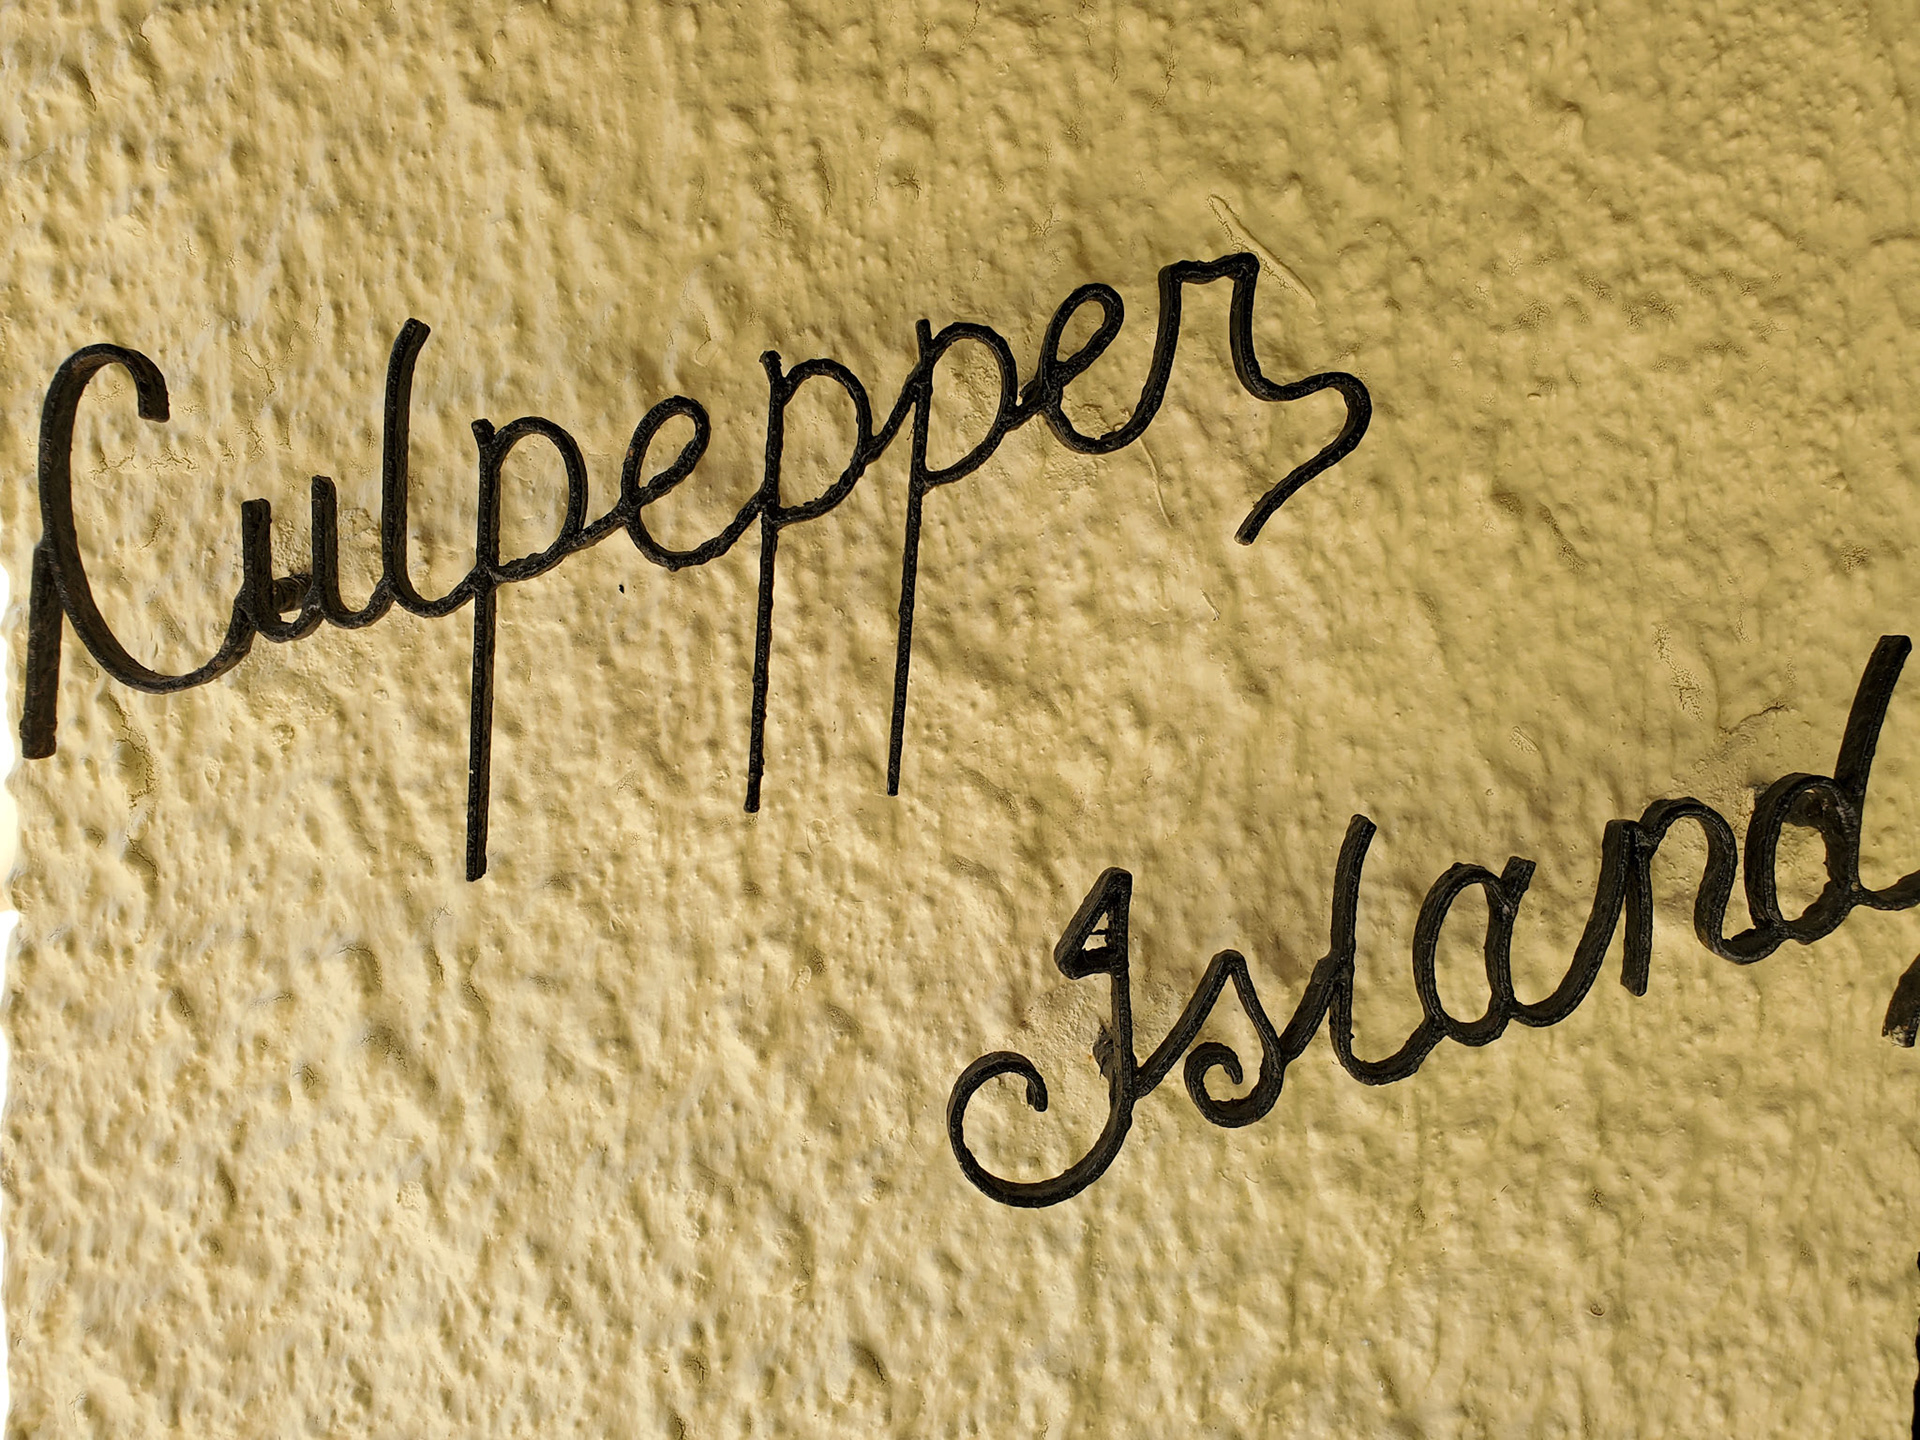 Culpepper
Island